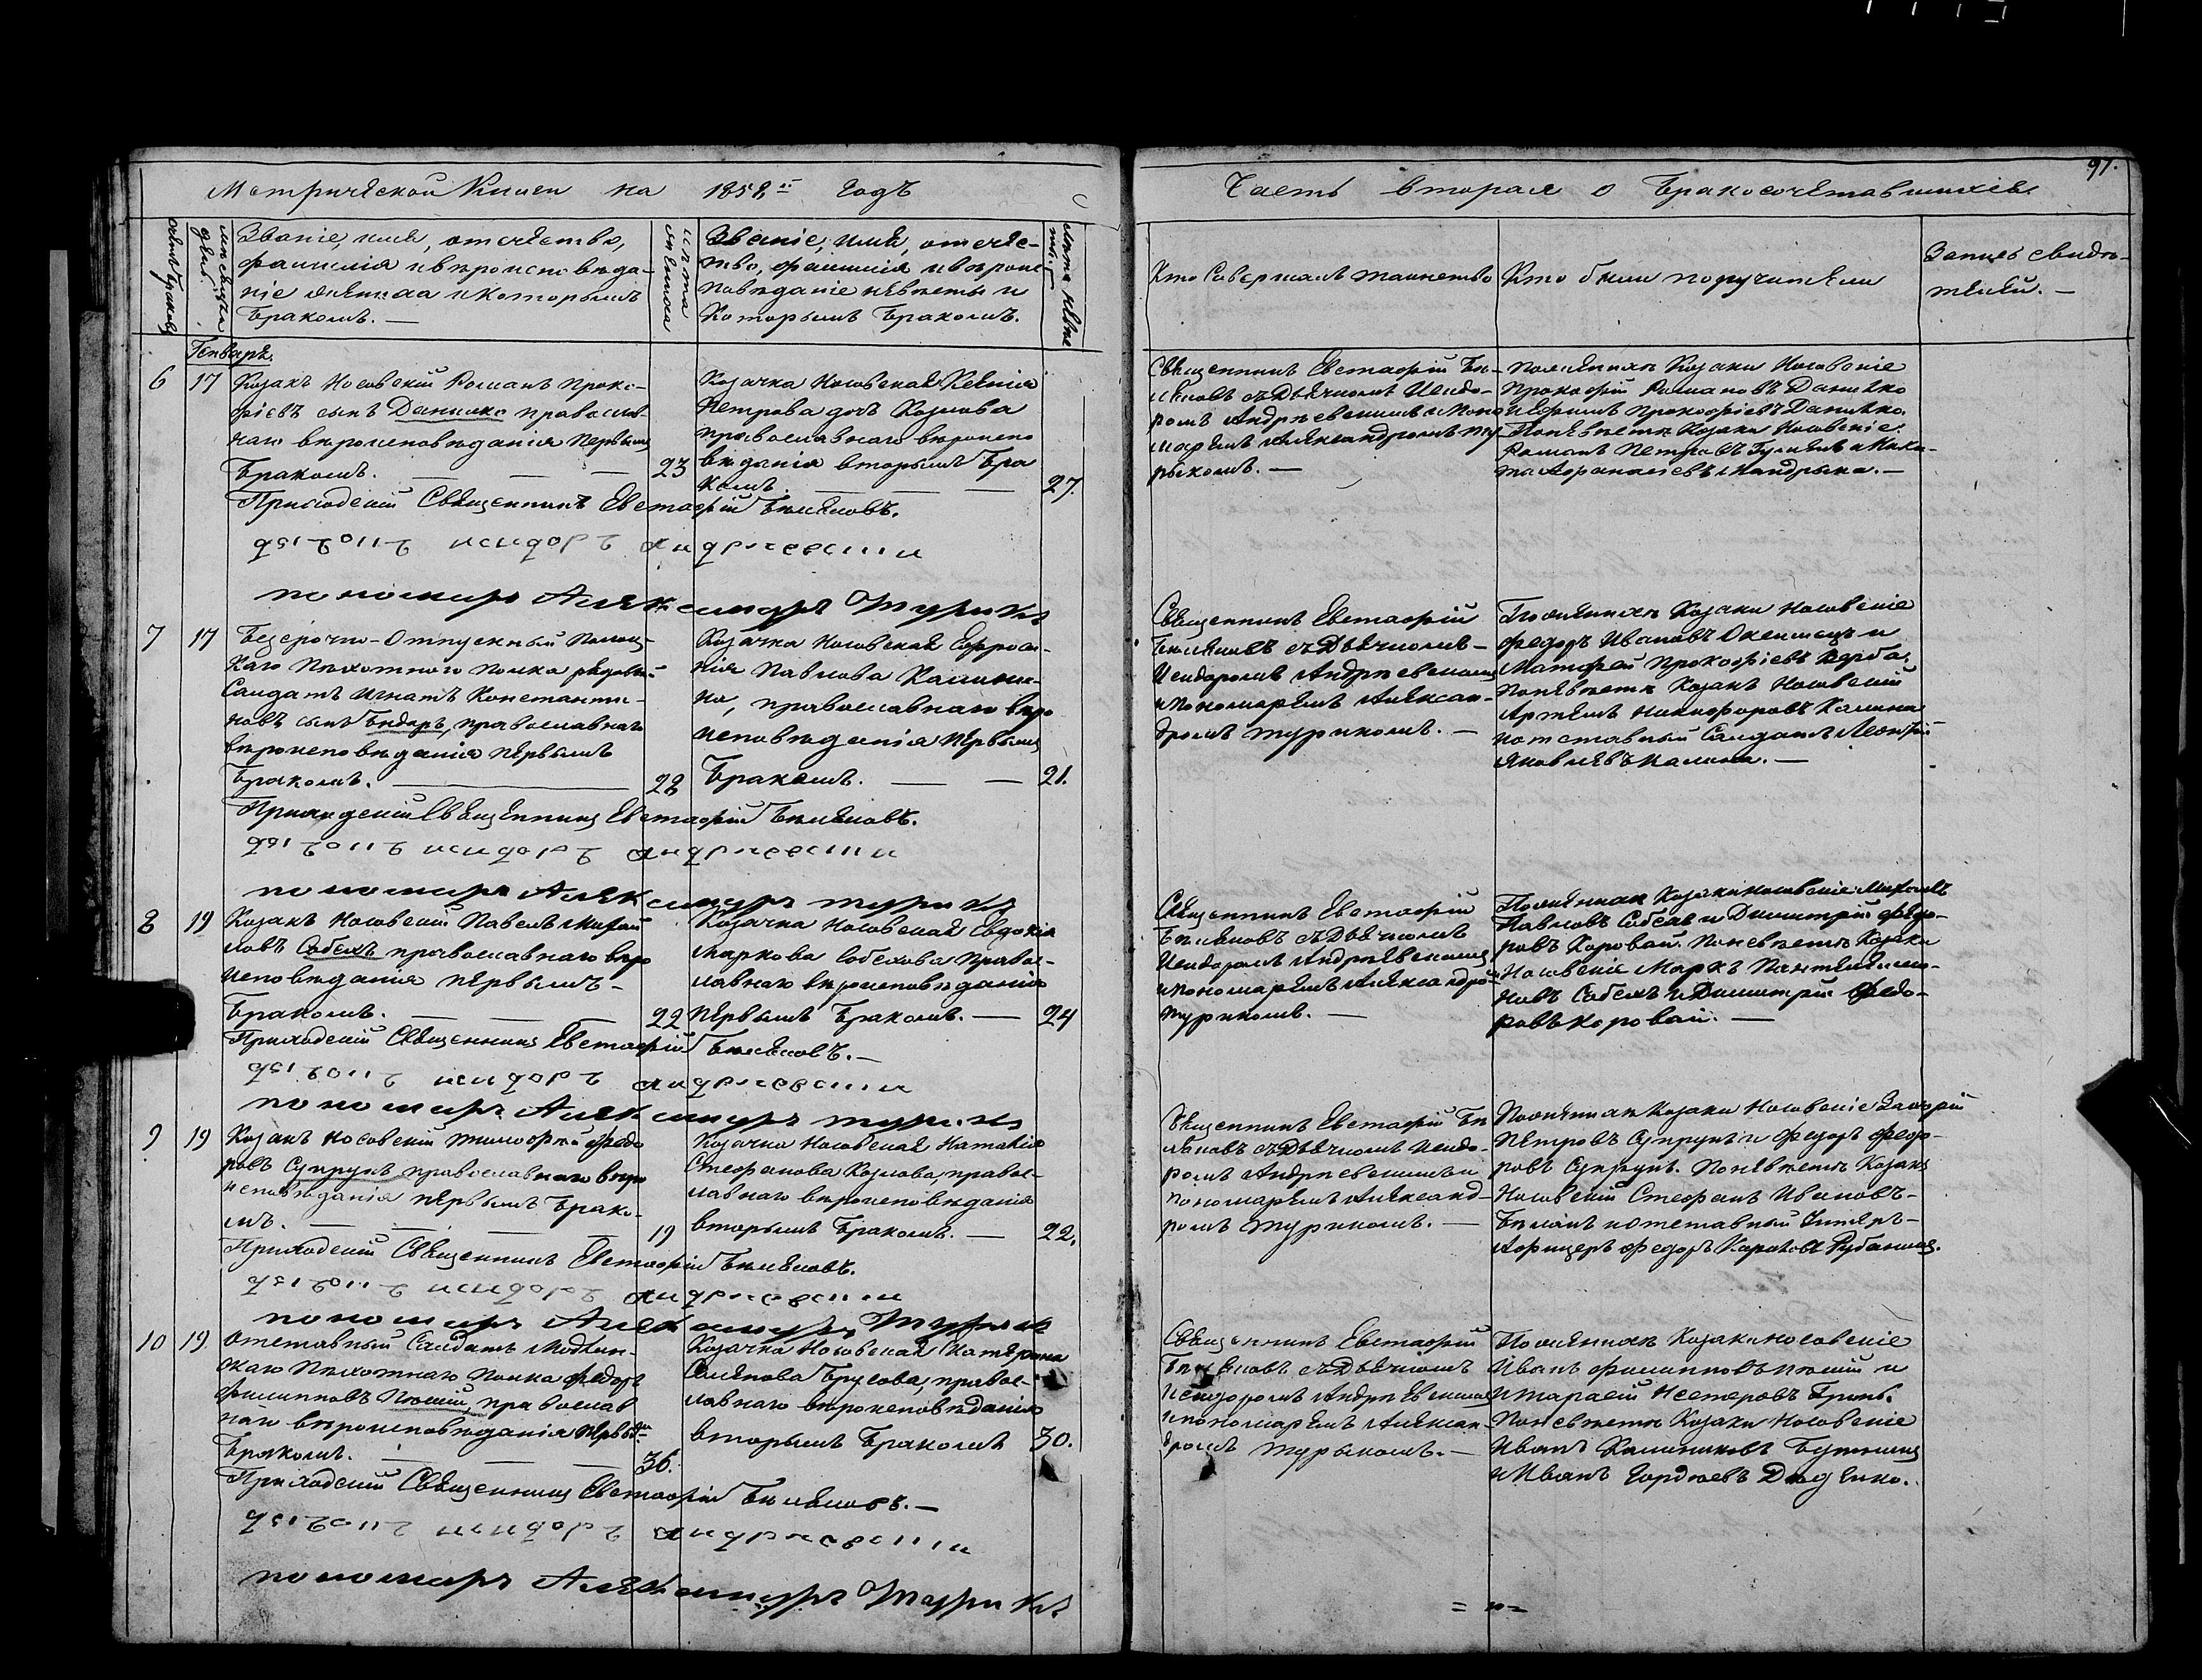 Метрической Книги на 1858й годъ
Часть вторая о бракосочетавшихся
97.
Счетъ браковъ
мѣсяцъ и день
Званіе, имя, отечество,
фамилія и вѣроисповѣда-
ніе жениха и которымъ
бракомъ. —
лѣта жениха
Званіе, имя, отече-
тво, фамилія и вѣроис-
повѣданіе невѣсты и
Которымъ бракомъ.
лѣта невѣс
Кто Совершалъ таинство
Кто были поручители
Запись свидѣ-
телей. —
Генварь.
6 17
Козакъ Носовскій Романъ Проко-
фіевъ сынъ Данилко православ-
наго вѣроисповѣданія первымъ
бракомъ. — — — 23
Козачка Носовская Ксенія
Петрова дочь Козлова
православнаго вѣроиспо
вѣданія вторымъ бра
комъ. — — — 27.
Священникъ Евстафій Бѣ-
ляковъ съ Дьячкомъ Исидо-
ромъ Андріевскимъ и поно
маремъ Александромъ Ту-
рыкомъ. —
По женихѣ Козаки Носовскіе
Прокофій Романовъ Данилко
и Ефимъ Прокофіевъ Данилко.
По невѣстѣ Козаки Носовскіе.
Романъ Петровъ и Ники-
та Афанасіевъ Мандрыка. —
Приходскій Священникъ Евстафій Бѣляковъ.
дьячокъ Исидоръ Андріевскій
пономарь Александръ Турикъ
7 17
Безсрочно-Отпускный
Каго Пѣхотного полка рядовый
Салдатъ Игнатъ Константи-
новъ сынъ Бндарь, православнаго
вѣроисповѣданія первымъ
бракомъ. — 28
Козачка Носовская Ефроси-
нія Павлова Калини-
на, православнаго вѣро
исповѣданія первымъ
бракомъ. — — 21.
Священникъ Евстафій
Бѣляковъ съ Дьячкомъ —
Исидоромъ Андріевскимъ
и пономаремъ Алексан-
дромъ Турикомъ. —
По женихѣ Козаки Носовскіе
Федоръ Ивановъ и
Матфей Прокофіевъ
По невѣстѣ Козакъ Носовскій
Артемъ Никифоровъ Калина
и отставный Салдатъ Леонтій
Яковлевъ Калина. —
Приходскій Священникъ Евстафій Бѣляковъ.
дьячокъ Исидоръ Андріевскій
пономарь Александръ Турикъ
8 19
Козакъ Носовскій Павелъ Михай
ловъ Собехъ православнаго вѣро
исповѣданія первымъ —
бракомъ. — — 22
Козачка Носовская Евдокія
Маркова Собехова Правос-
лавнаго вѣроисповѣданія
первымъ бракомъ. — 24
Священникъ Евстафій
Бѣляковъ съ Дьячкомъ
Исидоромъ Андріевскимъ
и пономаремъ Александро
Турикомъ. —
По женихѣ Козаки Носовскіе Михаилъ
Павловъ Собехъ и Димитрій Федо-
ровъ Коровай. По невѣстѣ Козаки
Носовскіе Маркъ Пантелеимо-
новъ Собехъ и Димитрій Федо-
ровъ Коровай. —
Приходскій Священникъ Евстафій Бѣляковъ. —
дьячокъ Исидоръ Андріевскій
пономарь Александръ Турикъ
9 19
Козакъ Носовскій Тимофей Федо
ровъ Супрунъ православнаго вѣро
исповѣданія первымъ брако-
мъ. — — — 19
Козачка Носовская Наталія
Стефанова Козлова, правос-
лавнаго вѣроисповѣданія
вторымъ бракомъ. — 22.
Священникъ Евстафій Бѣ
ляковъ съ Дьячкомъ Исидо-
ромъ Андріевскимъ и
пономаремъ Александ-
ромъ Турикомъ. —
По женихѣ Козаки Носовскіе Захарій
Петровъ Супрунъ и Федоръ Федо-
ровъ Супрунъ. По невѣстѣ Козакъ
Носовскій Стефанъ Ивановъ —
и отставный Унтеръ-
Афицеръ Федоръ
Приходскій Священникъ Евстафій Бѣляковъ.
дьячокъ Исидоръ Андріевскій
пономарь Александръ Турикъ
10 19.
Отставный Салдатъ Модлин-
скаго Пѣхотнаго Полка Федоръ
Филипповъ православ
наго вѣроисповѣданія первымъ
бракомъ. — — — 36.
Козачка Носовская Катерина
правос-
лавнаго вѣроисповѣданія
вторымъ бракомъ 30.
Священникъ Евстафій
Бѣляковъ съ Дьячкомъ
Исидоромъ Андріевскимъ
и пономаремъ Алексан-
дромъ Турыкомъ. —
По женихѣ Козаки Носовскіе
Иванъ Филипповъ и
Тарасій Нестеровъ
По невѣстѣ Козаки Носовскіе
Иванъ
и Иванъ Гордѣевъ
Приходскій Священникъ Евстафій Бѣляковъ. —
дьячокъ Исидоръ Андріевскій
пономарь Александръ Турикъ